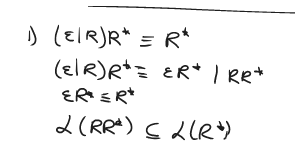 1) (ε|R)R* ≡ R*
(ε|R)R* ≡ εR* | RR*
εR* ≡ R*
ℒ(RR*) ⊆ ℒ(R*)